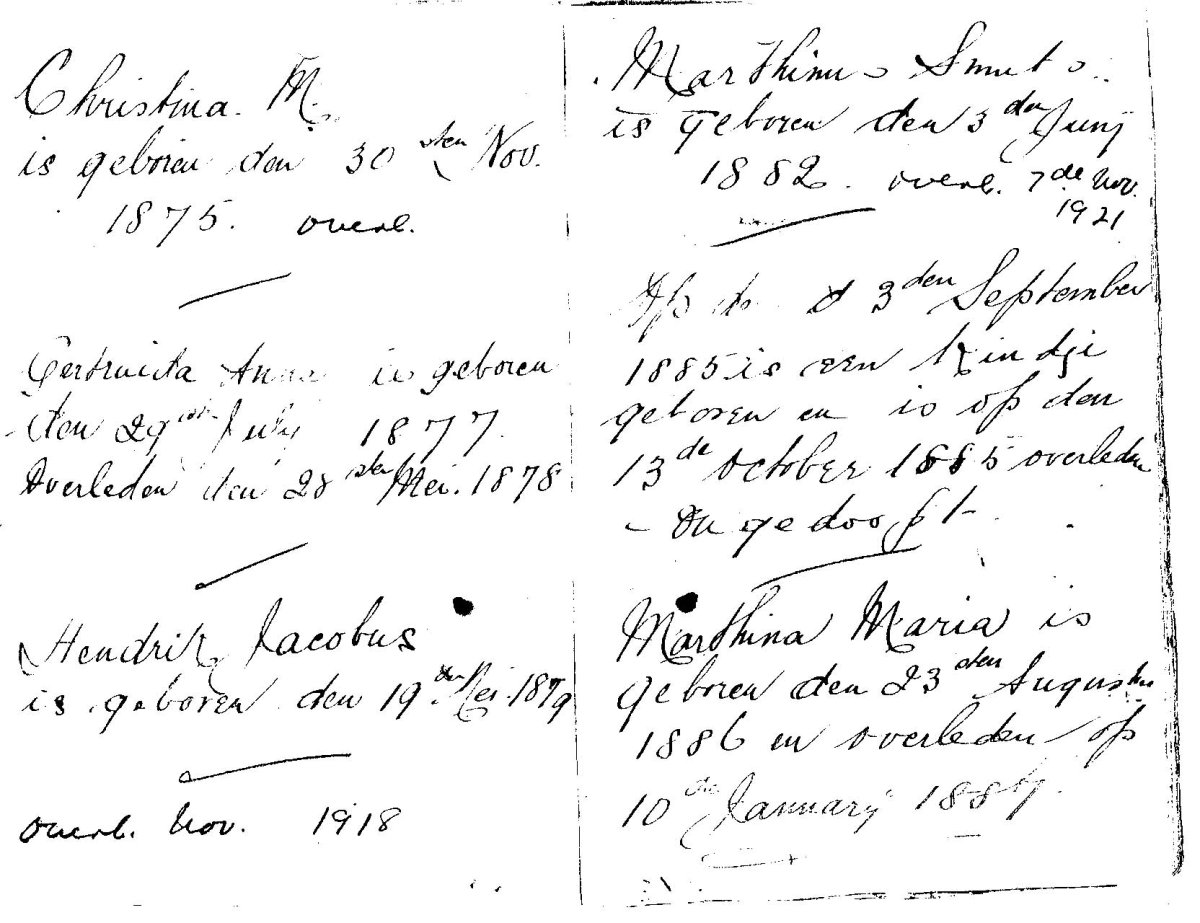 Christina. M.
is geboren den 30 sten Nov.
1875. overl.
Gertruida Anna is geboren
den 29 sten July 1877.
Overleden den 28 sten Mei. 1878
Hendrik Jacobus
is geboren den 19 den Mei. 1879
overl. Nov. 1918
Marthinus Smuts.
is geboren den 3 den Junij
1882. overl. 7 de Nov.
1921
Op de 3 den September
1885 is een Kindje
geboren en is op den
13 de October 1885 overleden
- On gedoopt -
Marthina Maria is
geboren den 23 sten Augustus
1886 en overleden op
10 de January 1887.